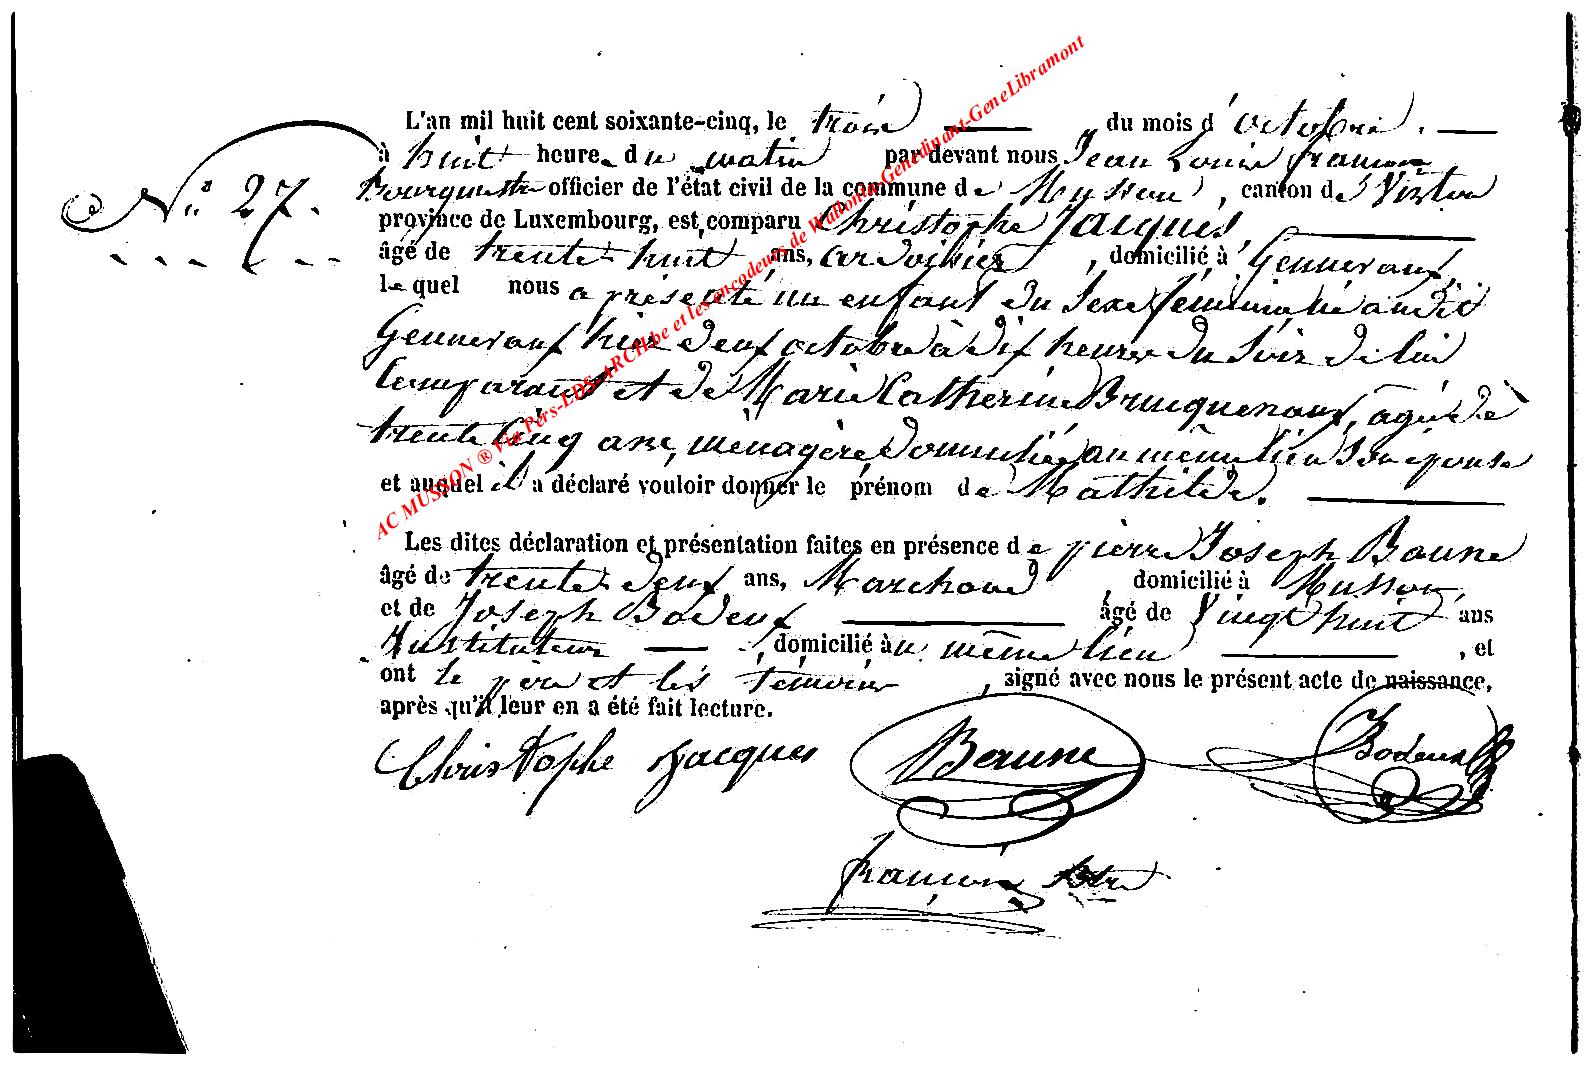 L'an mil huit cent soixante-cinq, le trois du mois d'octobre.
à huit heures du matin par devant nous Jean Louis françois
Bourgumestre officier de l'état civil de la commune de Musson, canton de Virton
N° 27.
province de Luxembourg, est comparu Christophe Jacques,
âgé de trente huit ans, ardoisier, domicilié à Genneraux,
lequel nous a présenté un enfant du sexe féminin, né au dit
Genneraux hier deux octobre à dix heures du soir de lui
Comparant et de Marie Catherine Brucquenaux, agée de
trente Cinq ans, ménagère, domiciliée au même lieu Son épouse
et auquel il a déclaré vouloir donner le prénom de Mathilde.
Les dites déclaration et présentation faites en présence de pierre Joseph Baune
âgé de trente deux ans, Marchand, domicilié à Musson,
et de Joseph Bodeux âgé de Vingt huit ans
Instituteur, domicilié au même lieu, et
ont le père et les témoins, signé avec nous le présent acte de naissance,
après qu'il leur en a été fait lecture.
Christophe Jacques Baune Bodeux
françois
AC MUSSON ® Via Pers-LDS-ARCH.be et les encodeurs de Wallonia-Genedinant-GeneLibramont